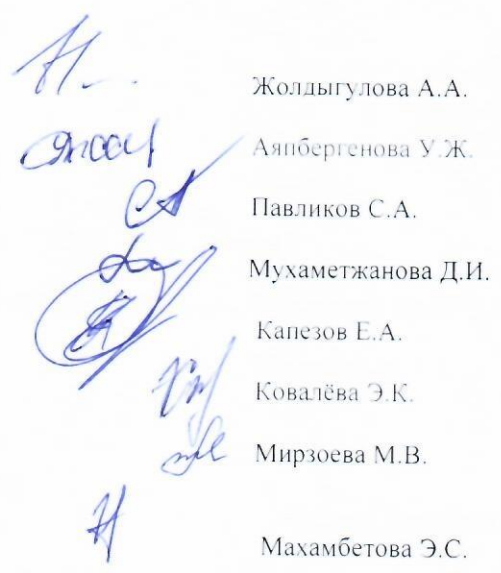 Жолдыгулова А.А.
Аяпбергенова У.Ж.
Павликов С.А.
Мухаметжанова Д.И.
Капезов Е.А.
Ковалёва Э.К.
Мирзоева М.В.
Махамбетова Э.С.